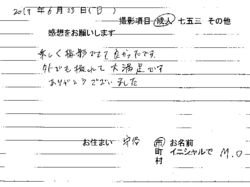 2019年6月23日(日)
撮影項目 成人 七五三 その他
感想をお願いします
楽しく撮影できて良かったです。
外でも撮れて大満足です
ありがとうございました
お住まい 市町村
お名前 イニシャルで M.O